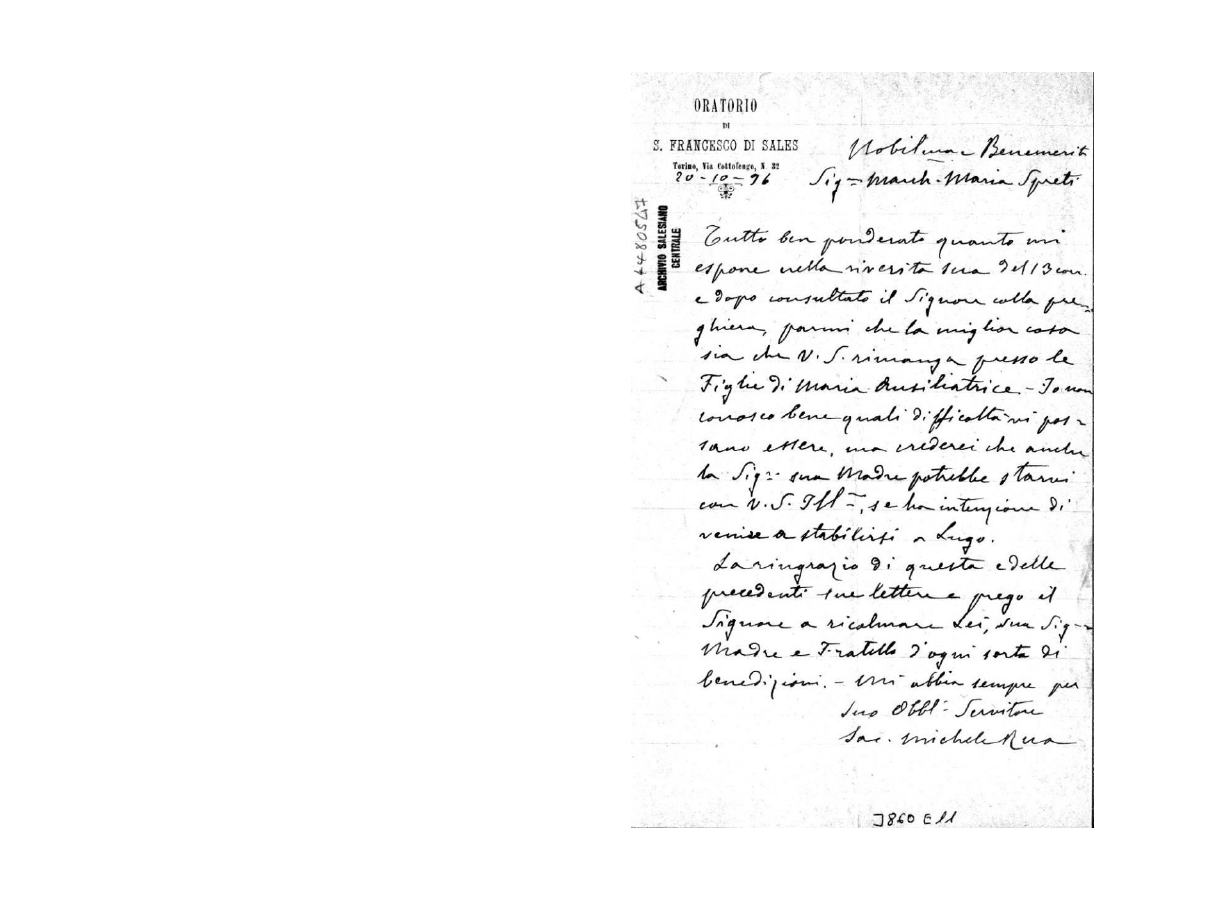 ORATORIO
DI
S. FRANCESCO DI SALES
Torino, Via Cottolengo, N. 32
20-10-96
Nobilma e Benemerita
Sigra March. Maria Spreti
A4480547
ARCHIVIO SALESIANO
CENTRALE
Tutto ben ponderato quanto mi
espone nella riverita sua del 13 corr.
e dopo consultato il Signore colla pre-
ghiera, parmi che la miglior cosa
sia che V. S. rimanga presso le
Figlie di Maria Ausiliatrice. - Io non
conosco bene quali difficoltà vi pos-
sano essere, ma crederei che anche
la Sigra sua Madre potrebbe starvi
con V. S. Ill.ma, se ha intenzione di
venire a stabilirsi a Lugo.
La ringrazio di questa e delle
precedenti sue lettere e prego il
Signore a ricolmare Lei, sua Sigra
Madre e Fratello d'ogni sorta di
benedizioni. - Mi abbia sempre per
Suo Obbl. Servitore
Sac. Michele Rua
3860 E11